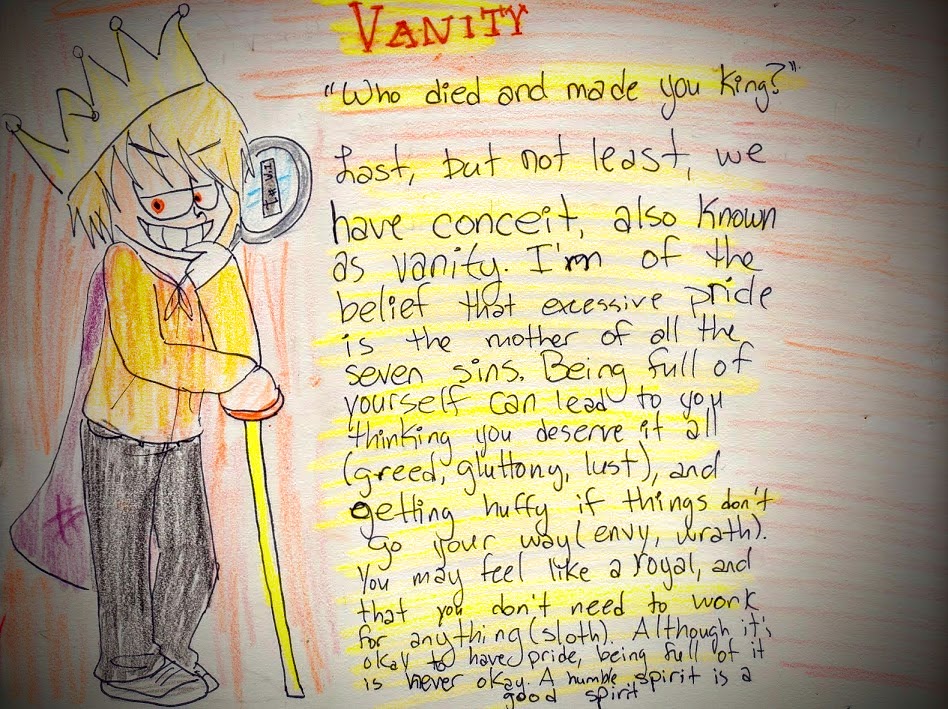 VANITY
"Who died and made you king?"
Last, but not least, we
have conceit, also known
as vanity. I'm of the
belief that excessive pride
is the mother of all the
seven sins. Being full of
yourself can lead to you
thinking you deserve it all
(greed, gluttony, lust), and
getting huffy if things don't
go your way (envy, wrath).
You may feel like a royal, and
that you don't need to work
for anything (sloth). Although it's
okay to have pride, being full of it
is never okay. A humble spirit is a
good spirit